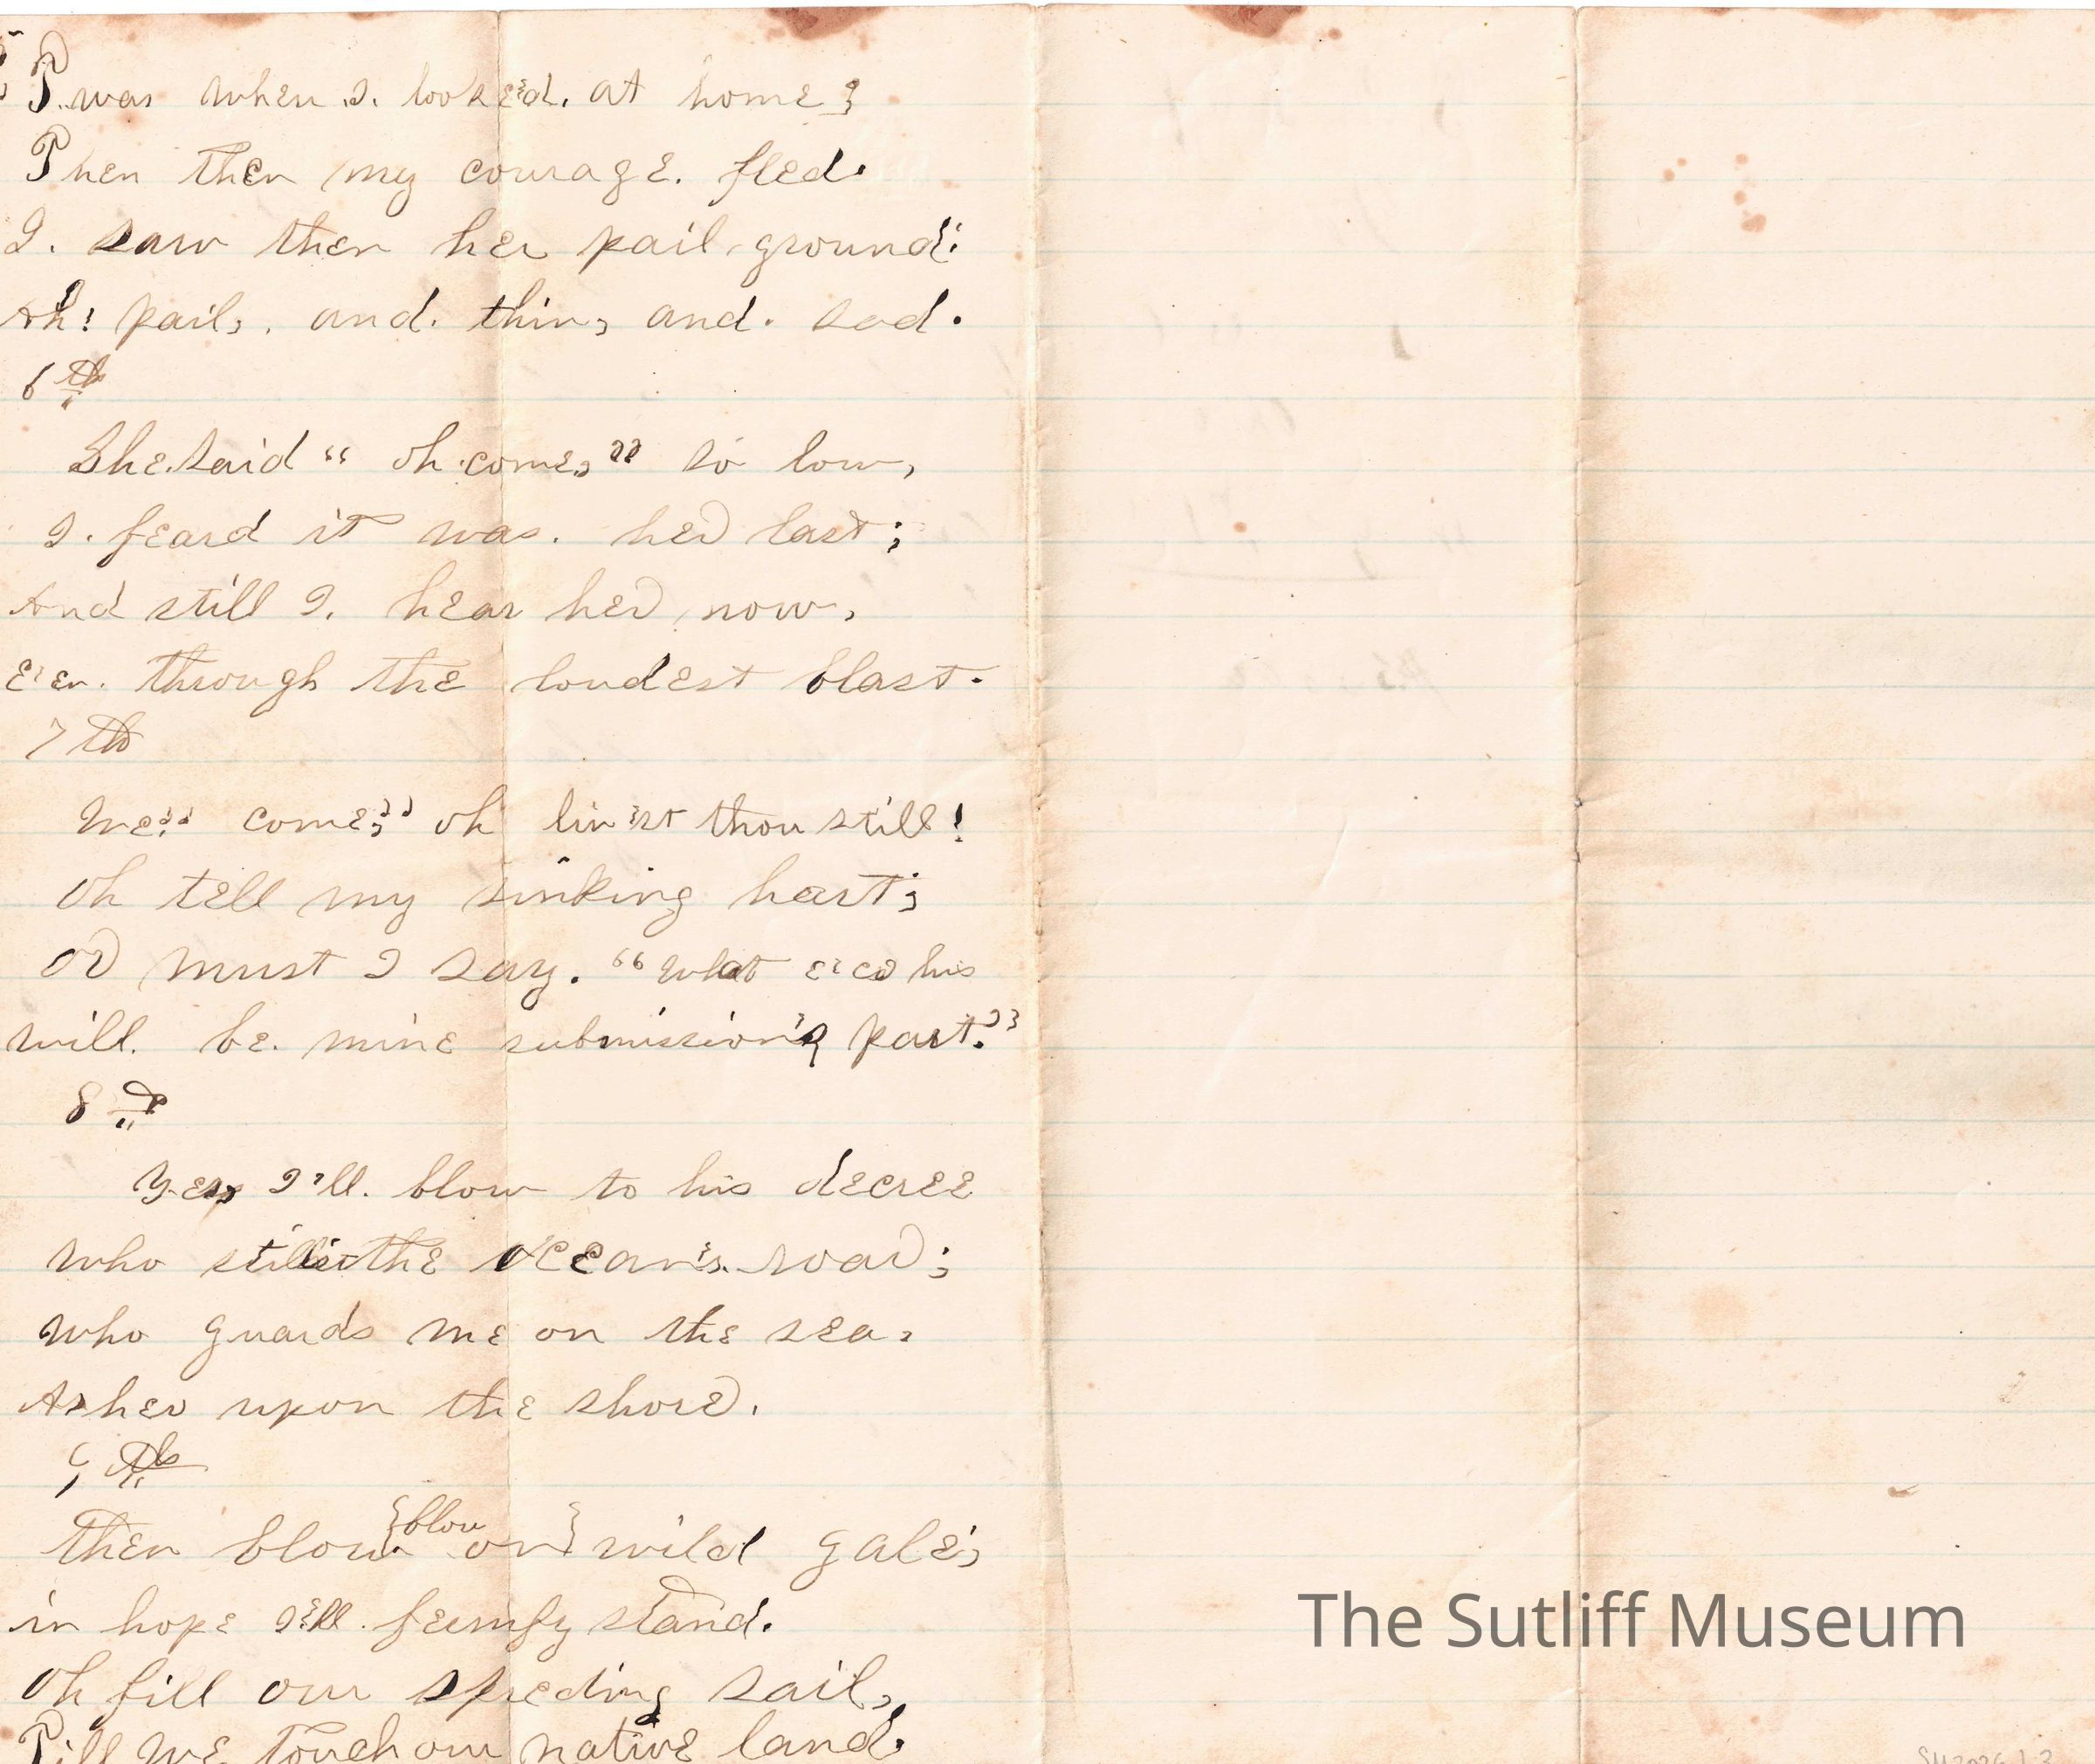 5
T.was when .I. looked. at home;
Then then my courage. fled.
I. saw then her pail ground;
Ah! pail,. and. thin, and. sad.
6th
She.said “ oh.come,” so low,
I. feard it was. her last;
And still I. hear her now,
E'en. through the loudest blast.
7th
We" come;" oh liv'st thou still!
oh tell my sinking hart;
or must I say. “what e'er his
will. be. mine submission's part."
8th
Yes I'll. blow to his decree
who stills the ocean's. roar;
who guards me on the sea,
As her upon the shore.
9th
Then blow {blow on} wild gale;
in hope I'll. stand.
oh fill our spreding sail,
Till we touch our native land.
The Sutliff Museum